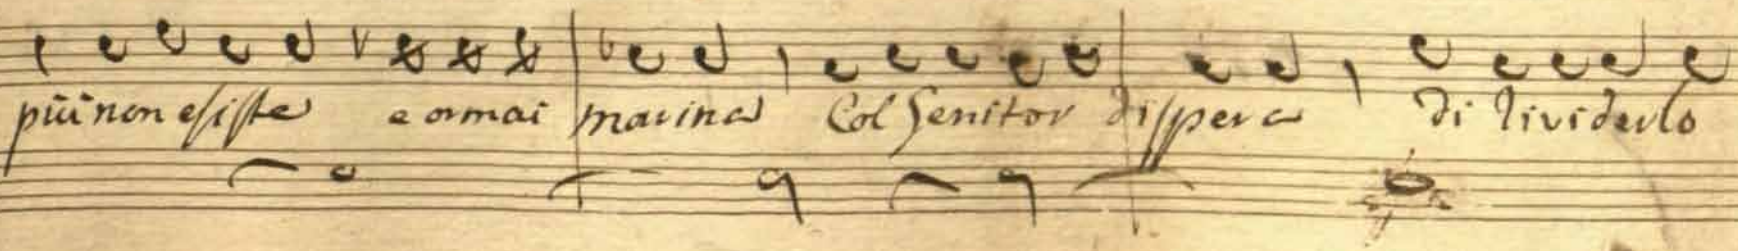 più non esiste e ormai marina Col Genitor dispera di dividerlo